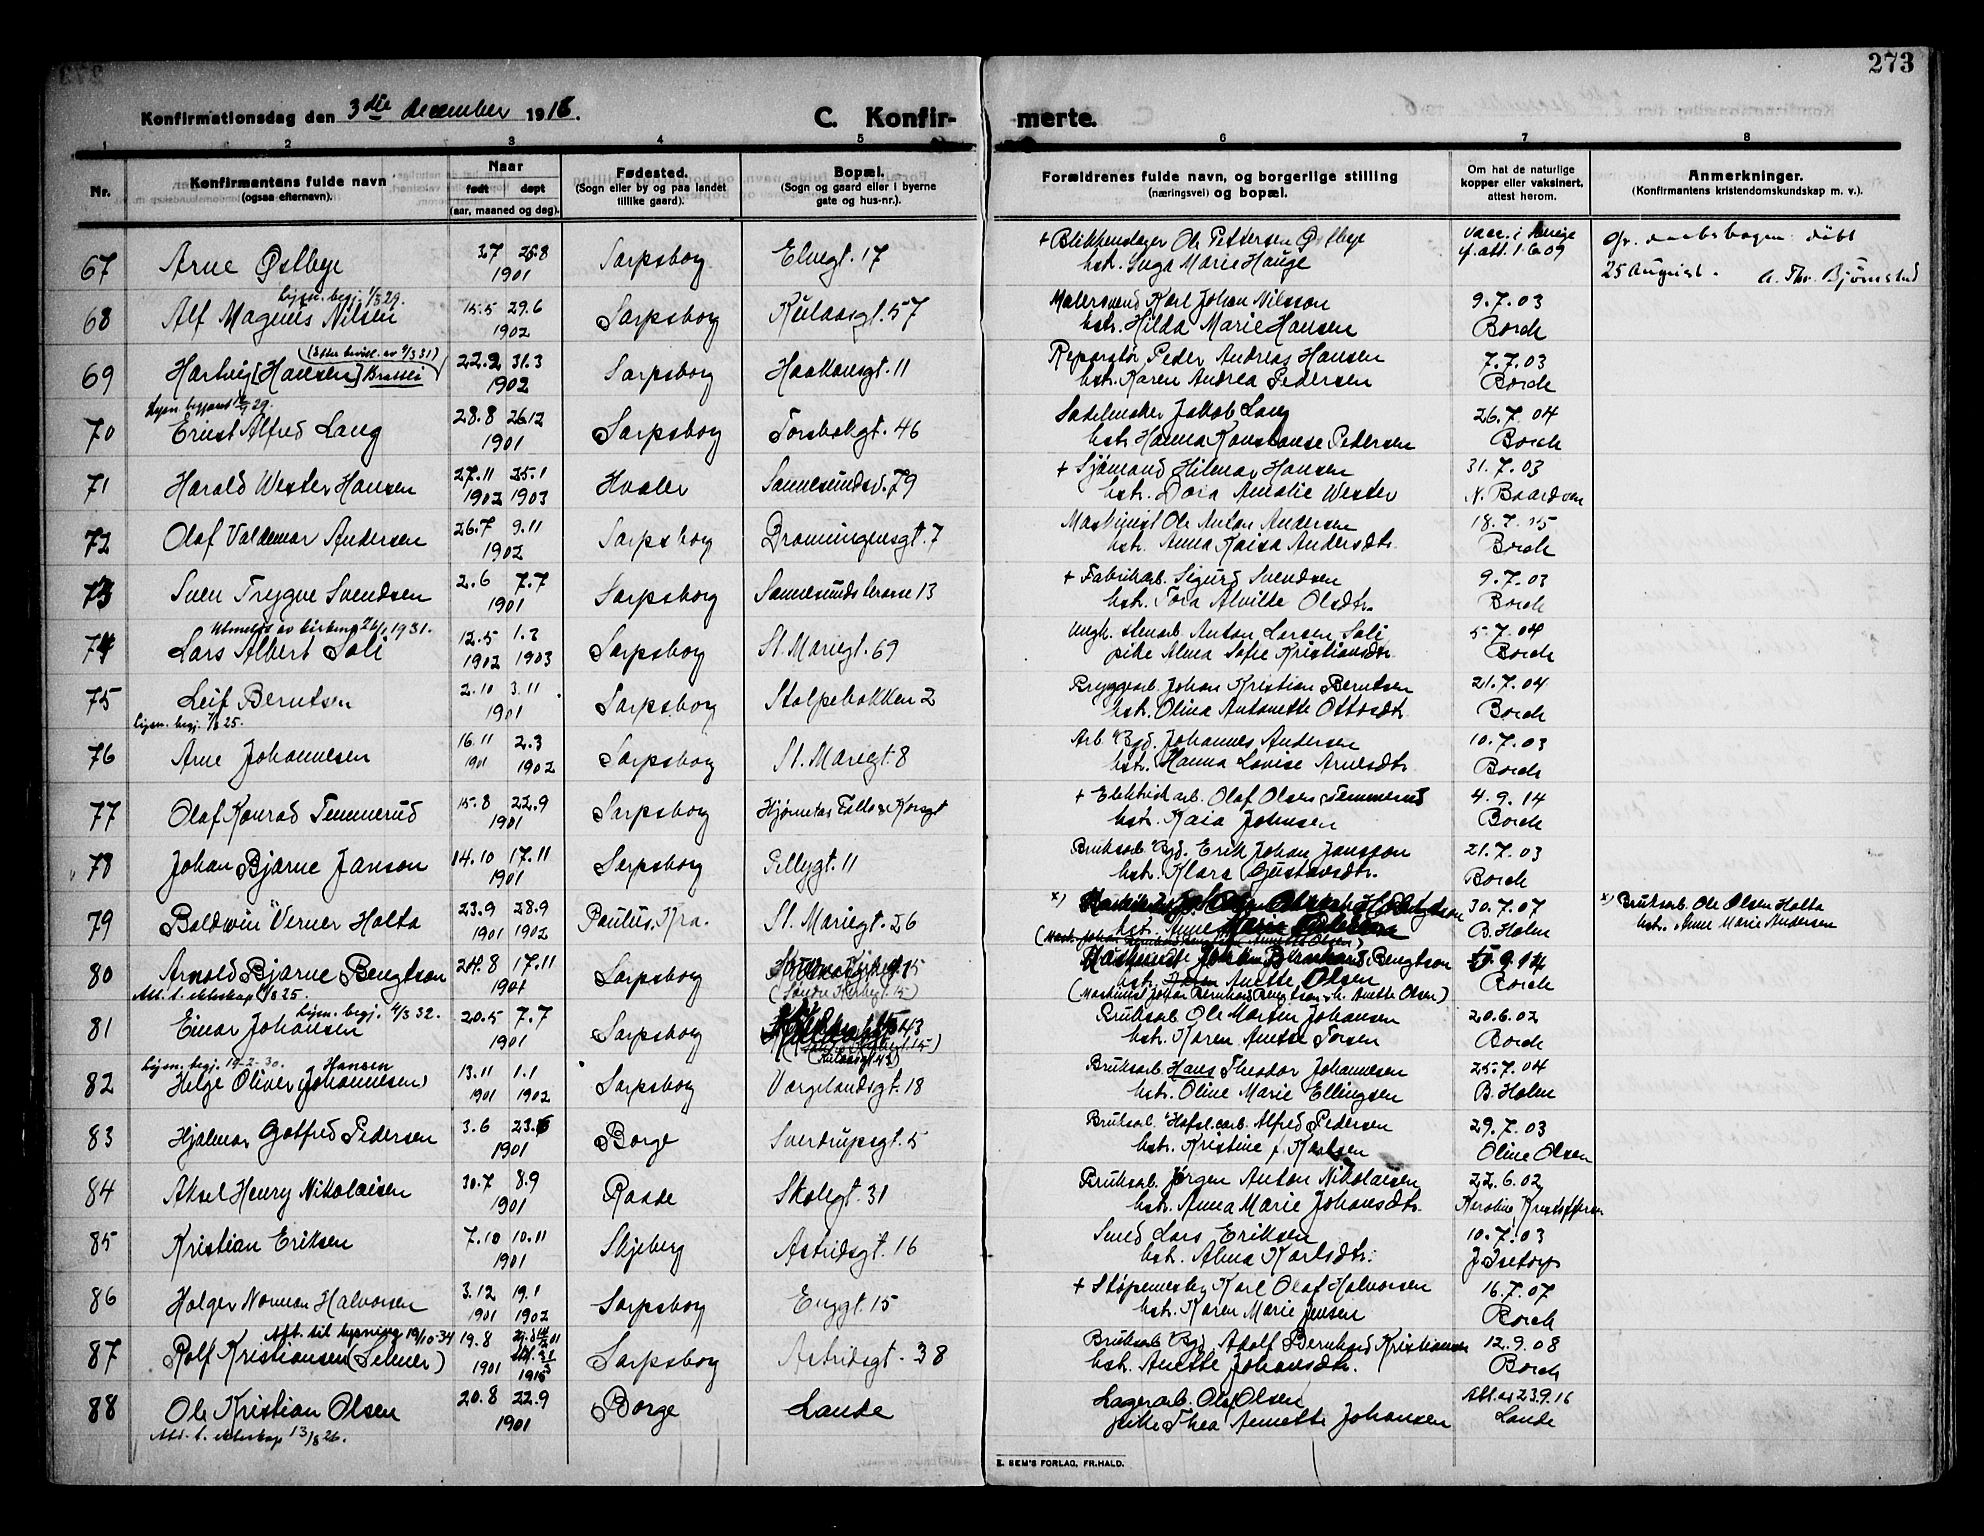 273
Konfirmationsdag den 3die december 1916.
C. Konfir- merte.
1 2 3 4 5 6 7 8
Nr. Konfirmantens fulde navn (ogsaa efternavn). Naar født døpt (aar, maaned og dag). Fødested. (Sogn eller by og paa landet tillike gaard). Bopæl. (Sogn og gaard eller i byerne gate og hus-nr.). Forældrenes fulde navn, og borgerlige stilling (næringsvei) og bopæl. Om hat de naturlige kopper eller vaksinert, attest herom. Anmerkninger. (Konfirmantens kristendomskundskap m. v.).
67 Arne Østbye 3.7 25.8 1901 Sarpsborg Elvegt. 17 + Blikkenslager Ole Pettersen Østbye
hstr. Inga Marie Hauge
vacc. i
f. att. 1.6.09
døbt
25 August. A. Thv. Bjørnstad
lysn. begj. 1/3 29.
68 Alf Magnus Nilsen 15.5 29.6 1902 Sarpsborg Kulaasgt. 57 Malersvend Karl Johan Nilsson 9.7.03
hstr. Hilda Marie Hansen Borch
(Efter bevill. av 9/3 31)
69 Hartvig [Hansen] 22.2 31.3 1902 Sarpsborg Haakonsgt. 11 Reparatør Peder Andreas Hansen 7.7.03
hstr. Karen Andrea Pedersen Borch
70 Ernst Alfred Lang 28.8 26.12 1901 Sarpsborg Torsbekgt. 46 Sadelmaker Jakob Lang 26.7.04
hstr. Hanna Konstanse Pedersen Borch
71 Harald Wester Hansen 27.11 1902 25.1 1903 Hvaler Sannesundsv. 79 + Sjømand Hilmar Hansen 31.7.03
hstr. Dora Amalie Wester N. Baardsen
72 Olaf Valdemar Andersen 26.7 9.11 1902 Sarpsborg Dronningensgt. 7 Maskinist Ole Anton Andersen 18.7.
hstr. Anna Kaisa Andersdtr. Borch
73 Sven Trygve Svendsen 2.6 7.7 1901 Sarpsborg Sannesunds terasse 13 + Fabrikarb. Sigurd Svendsen 9.7.03
hstr. Tora Alvilde Olsdtr. Borch
Utmeldt av kirken 1931.
74 Lars Albert Soli 12.5 1902 1903 Sarpsborg St. Mariegt. 69 Ungk. stenarb. Anton Larsen Soli 5.7.04
pike Alma Sofie Kristiansdtr. Borch
75 Leif Berntsen 2.10 3.11 1901 Sarpsborg Stolpebakken 2 Bryggearb. Johan Kristian Berntsen 21.7.04
lysn. begj. 7/8 25. hstr. Olina Antonette Ottosdtr. Borch
76 Arne Johannesen 16.11 1901 2.3 1902 Sarpsborg St. Mariegt. 8 Arb. Bgd. Johannes Andersen 10.7.03
hstr. Hanna Lovise Arnesdtr. Borch
77 Olaf Konrad Temmerud 15.8 22.9 1901 Sarpsborg Hjørnet av & Korsgt + Elektrisk arb. Olaf Olsen Temmerud 4.9.14
hstr. Kaia Johnsen Borch
78 Johan Bjarne Janson 14.10 17.11 1901 Sarpsborg Pellygt. 11 Bruksarb. Bgd. Erik Johan Jansson 21.7.03
hstr. Klara Gustavsdtr. Borch
79 Baldwin Verner Holta 23.9 1901 28.9 1902 Paulus, Kra. St. Mariegt. 26 x) 30.7.07
B. Holm
x) Bruksarb. Ole Olsen Holta
hstr. Anne Marie Andersen
80 Arnold Bjarne Bengtson 24.8 17.11 1901 Sarpsborg (Søndre Kirkegt. 15) Johan Bernhard Bengtson .9.14
Att. t. ekteskap 25. hstr. Anette Olsen Borch
(Maskinist Johan Bernhard Bengtson & h. Anette Olsen)
lysn. begj. 4/3 32.
81 Einar Johansen 20.5 7.7 1901 Sarpsborg (Kulaasgt 43) Bruksarb. Ole Martin Johansen 20.6.02
hstr. Karen Anette Borch
lysn. begj. 14-2-30. Hansen
82 Helge Oliver (Johannesen) 13.11 1901 1.1 1902 Sarpsborg Vergelandsgt. 18 Bruksarb. Hans Theodor Johannesen 25.7.04
hstr. Oline Marie Ellingsen B. Holm
83 Hjalmar Gotfred Pedersen 3.6 23.6 1901 Borge Sverdrupsgt. 5 Bruksarb. Alfred Pedersen 29.7.03
hstr. Kristine f. Karlsen Oline Olsen
84 Aksel Henry Nikolaisen 30.7 8.9 1901 Raade Skolegt. 31 Bruksarb. Jørgen Anton Nikolaisen 22.6.02
hstr. Anna Marie Johansdtr. Karoline Kristoffersen
85 Kristian Eriksen 7.10 10.11 1901 Skjeberg Astridsgt. 16 Smed Lars Eriksen 10.7.03
hstr. Alma Karlsdtr. J. Isetorp
86 Holger Norman Halvorsen 3.12 1901 19.1 1902 Sarpsborg Enggt. 15 + Støpemester Karl Olaf Halvorsen 16.7.07
hstr. Karen Marie Jensen Borch
Att. til lysning 19/10-34
87 Rolf Kristiansen (Selmer) 19.8 1901 Sarpsborg Astridsgt. 38 Bruksarb. Bgd Adolf Bernhard Kristiansen 12.9.08
hstr. Anette Johansdtr. Borch
88 Ole Kristian Olsen 20.8 22.9 1901 Borge Lande Lagerarb. Ole Olsen Att. av 23.9.16
Att. t. ekteskap 13/8 26. pike Thea Annette Johansen Lande
E. SEM'S FORLAG, FR.HALD.